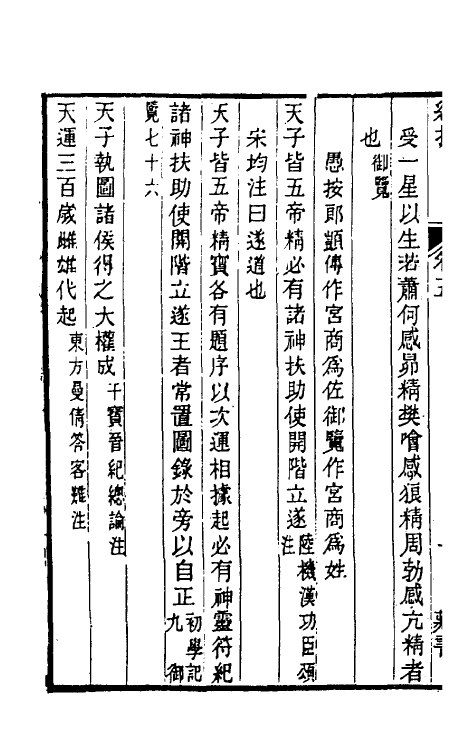 受一星以生若蕭何感昴精樊噲感狼精周勃感亢精者
也御覽
愚按郎顗傳作宮商爲佐御覽作宮商爲姓
天子皆五帝精必有諸神扶助使開階立遂陸機漢功臣頌注
宋均注曰遂道也
天子皆五帝精寶各有題序以次運相據起必有神靈符紀
諸神扶助使開階立遂王者常置圖錄於旁以自正初學記九御
覽七十六
天子執圖諸侯得之大權成干寶晉紀總論注
天運三百歲雌雄代起東方曼倩答客難注